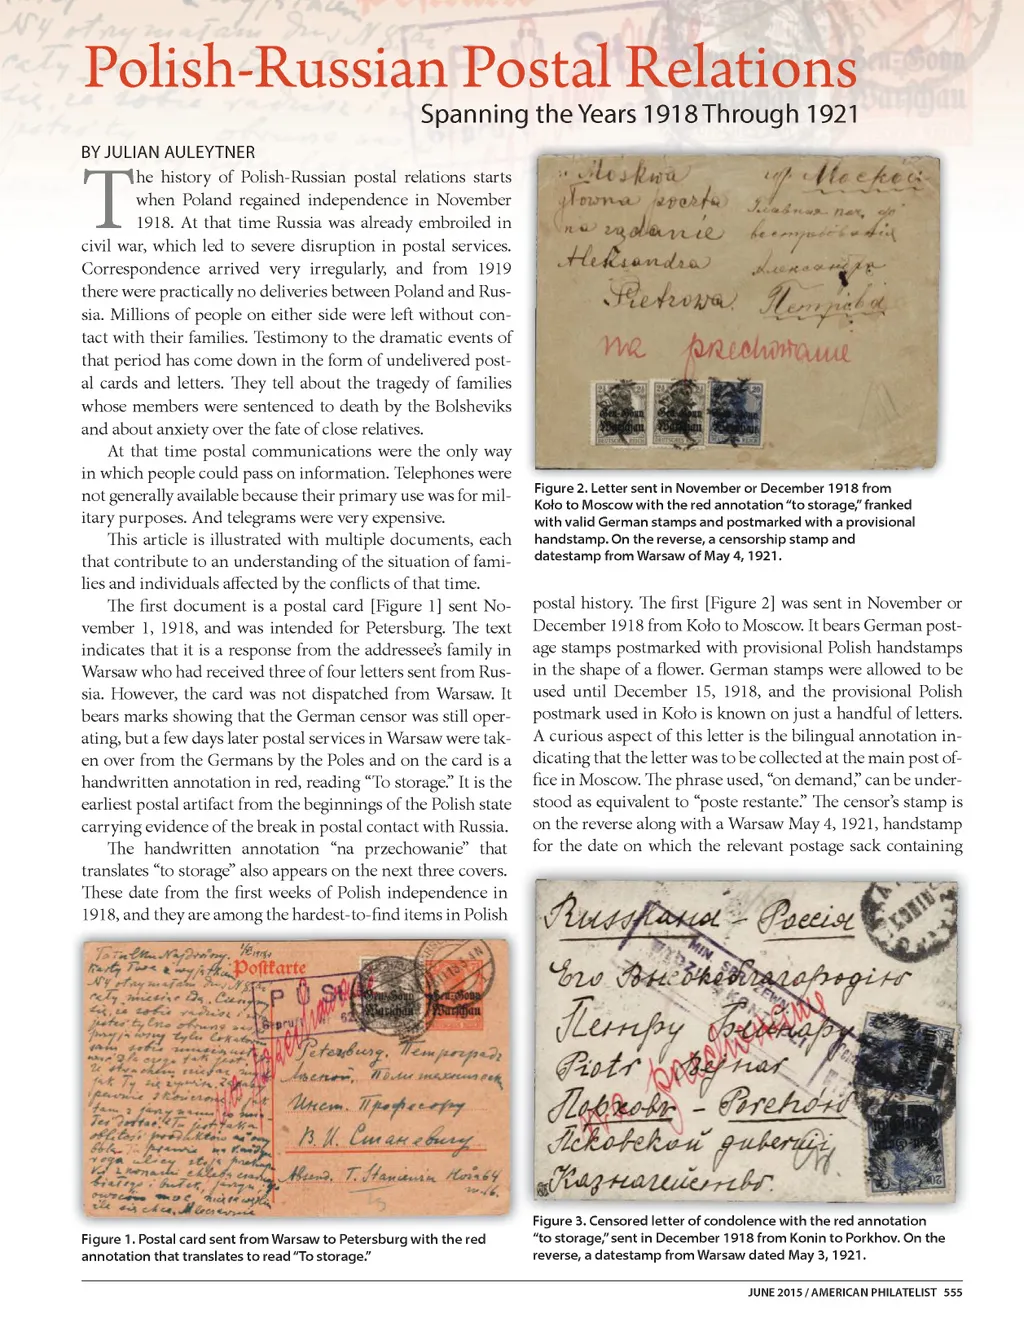 Polish-Russian Postal Relations
Spanning the Years 1918 Through 1921
BY JULIAN AULEYTNER
The history of Polish-Russian postal relations starts
when Poland regained independence in November
1918. At that time Russia was already embroiled in
civil war, which led to severe disruption in postal services.
Correspondence arrived very irregularly, and from 1919
there were practically no deliveries between Poland and Rus-
sia. Millions of people on either side were left without con-
tact with their families. Testimony to the dramatic events of
that period has come down in the form of undelivered post-
al cards and letters. They tell about the tragedy of families
whose members were sentenced to death by the Bolsheviks
and about anxiety over the fate of close relatives.
At that time postal communications were the only way
in which people could pass on information. Telephones were
not generally available because their primary use was for mil-
itary purposes. And telegrams were very expensive.
This article is illustrated with multiple documents, each
that contribute to an understanding of the situation of fami-
lies and individuals affected by the conflicts of that time.
The first document is a postal card [Figure 1] sent No-
vember 1, 1918, and was intended for Petersburg. The text
indicates that it is a response from the addressee's family in
Warsaw who had received three of four letters sent from Rus-
sia. However, the card was not dispatched from Warsaw. It
bears marks showing that the German censor was still oper-
ating, but a few days later postal services in Warsaw were tak-
en over from the Germans by the Poles and on the card is a
handwritten annotation in red, reading “To storage.” It is the
earliest postal artifact from the beginnings of the Polish state
carrying evidence of the break in postal contact with Russia.
The handwritten annotation “na przechowanie” that
translates “to storage” also appears on the next three covers.
These date from the first weeks of Polish independence in
1918, and they are among the hardest-to-find items in Polish
Postkarte
Gen.-Gouv.
Warschau
Petersburg. Петроградъ
Инст. Професору
В. И. Станевичу
Figure 1. Postal card sent from Warsaw to Petersburg with the red
annotation that translates to read “To storage.”
Moskwa
główna poczta
na rządanie
Aleksandra
Pietrowa.
гор. Москва
Александра
Петрова
na przechowanie
Gen.-Gouv.
Warschau
Figure 2. Letter sent in November or December 1918 from
Koło to Moscow with the red annotation “to storage,” franked
with valid German stamps and postmarked with a provisional
handstamp. On the reverse, a censorship stamp and
datestamp from Warsaw of May 4, 1921.
postal history. The first [Figure 2] was sent in November or
December 1918 from Koło to Moscow. It bears German post-
age stamps postmarked with provisional Polish handstamps
in the shape of a flower. German stamps were allowed to be
used until December 15, 1918, and the provisional Polish
postmark used in Koło is known on just a handful of letters.
A curious aspect of this letter is the bilingual annotation in-
dicating that the letter was to be collected at the main post of-
fice in Moscow. The phrase used, “on demand,” can be under-
stood as equivalent to “poste restante.” The censor's stamp is
on the reverse along with a Warsaw May 4, 1921, handstamp
for the date on which the relevant postage sack containing
Russland - Россія
Его Высокоблагородію
Петру Бейнару
Piotr Bejnar
Порховъ - Porchów
Псковской губерніи
Казначейство.
na przechowanie
Figure 3. Censored letter of condolence with the red annotation
“to storage,” sent in December 1918 from Konin to Porkhov. On the
reverse, a datestamp from Warsaw dated May 3, 1921.
JUNE 2015 / AMERICAN PHILATELIST 555